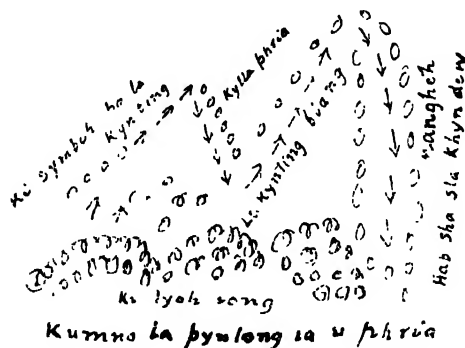 Ki symboh ba la
kynting
Kylla phria
La kynting biang
angheh
Hab sha sla khyndew
Ki lyoh song
Kumno la pynlong ia u phria